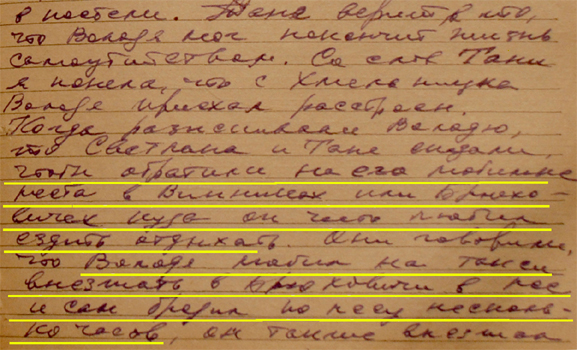 в постели. Таня верит в то,
что Володя мог покончить жизнь
самоубийством. Со слов Тани
я поняла, что с Хмельницка
Володя приехал расстроен.
Когда разыскивали Володю,
то Светлана и Таня сказали,
чтоб обратили на его любимые
места в Винниках или Брюхо-
вичах куда он часто любил
ездить отдыхать. Они говорили,
что Володя любил на такси
выезжать в Брюховичи в лес
и сам бродил по лесу несколь-
ко часов, он также выезжал